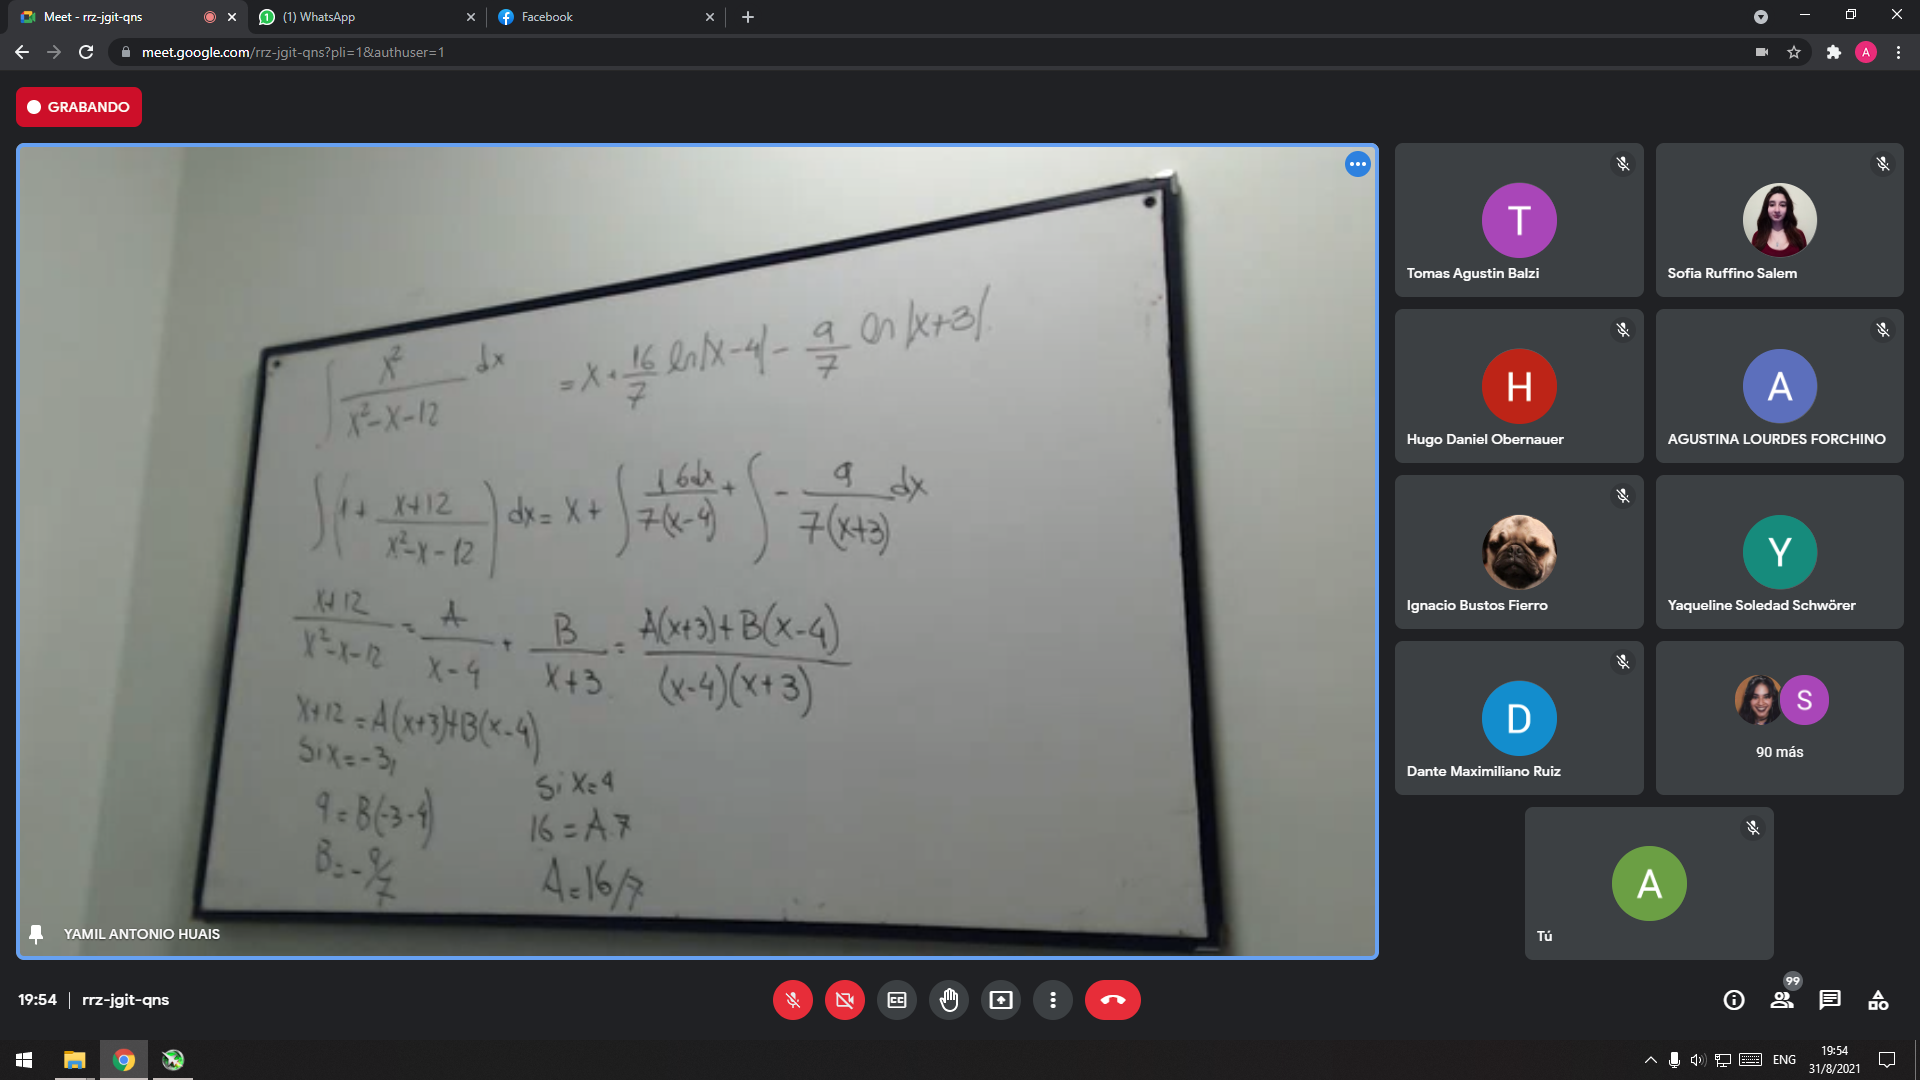 Meet - rrz-jgit-qns
(1) WhatsApp
Facebook
meet.google.com/rrz-jgit-qns?pli=1&authuser=1
GRABANDO
∫ x²/(x²-x-12) dx = x + 16/7 ln|x-4| - 9/7 ln|x+3|.
∫(1 + (x+12)/(x²-x-12)) dx = x + ∫ 16dx/7(x-4) + ∫ - 9/7(x+3) dx
(x+12)/(x²-x-12) = A/(x-4) + B/(x+3) = (A(x+3)+B(x-4))/((x-4)(x+3))
x+12 = A(x+3)+B(x-4)
Si x=-3,
9=B(-3-4)
B=-9/7
Si x=4
16=A.7
A=16/7
YAMIL ANTONIO HUAIS
T
Tomas Agustin Balzi
Sofia Ruffino Salem
H
Hugo Daniel Obernauer
A
AGUSTINA LOURDES FORCHINO
Ignacio Bustos Fierro
Y
Yaqueline Soledad Schwörer
D
Dante Maximiliano Ruiz
S
90 más
A
Tú
19:54 | rrz-jgit-qns
CC
99
ENG
19:54
31/8/2021